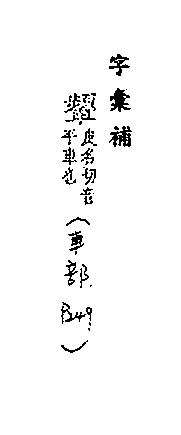 字彙補
皮命切音
平車也
(車部.
P.249.)